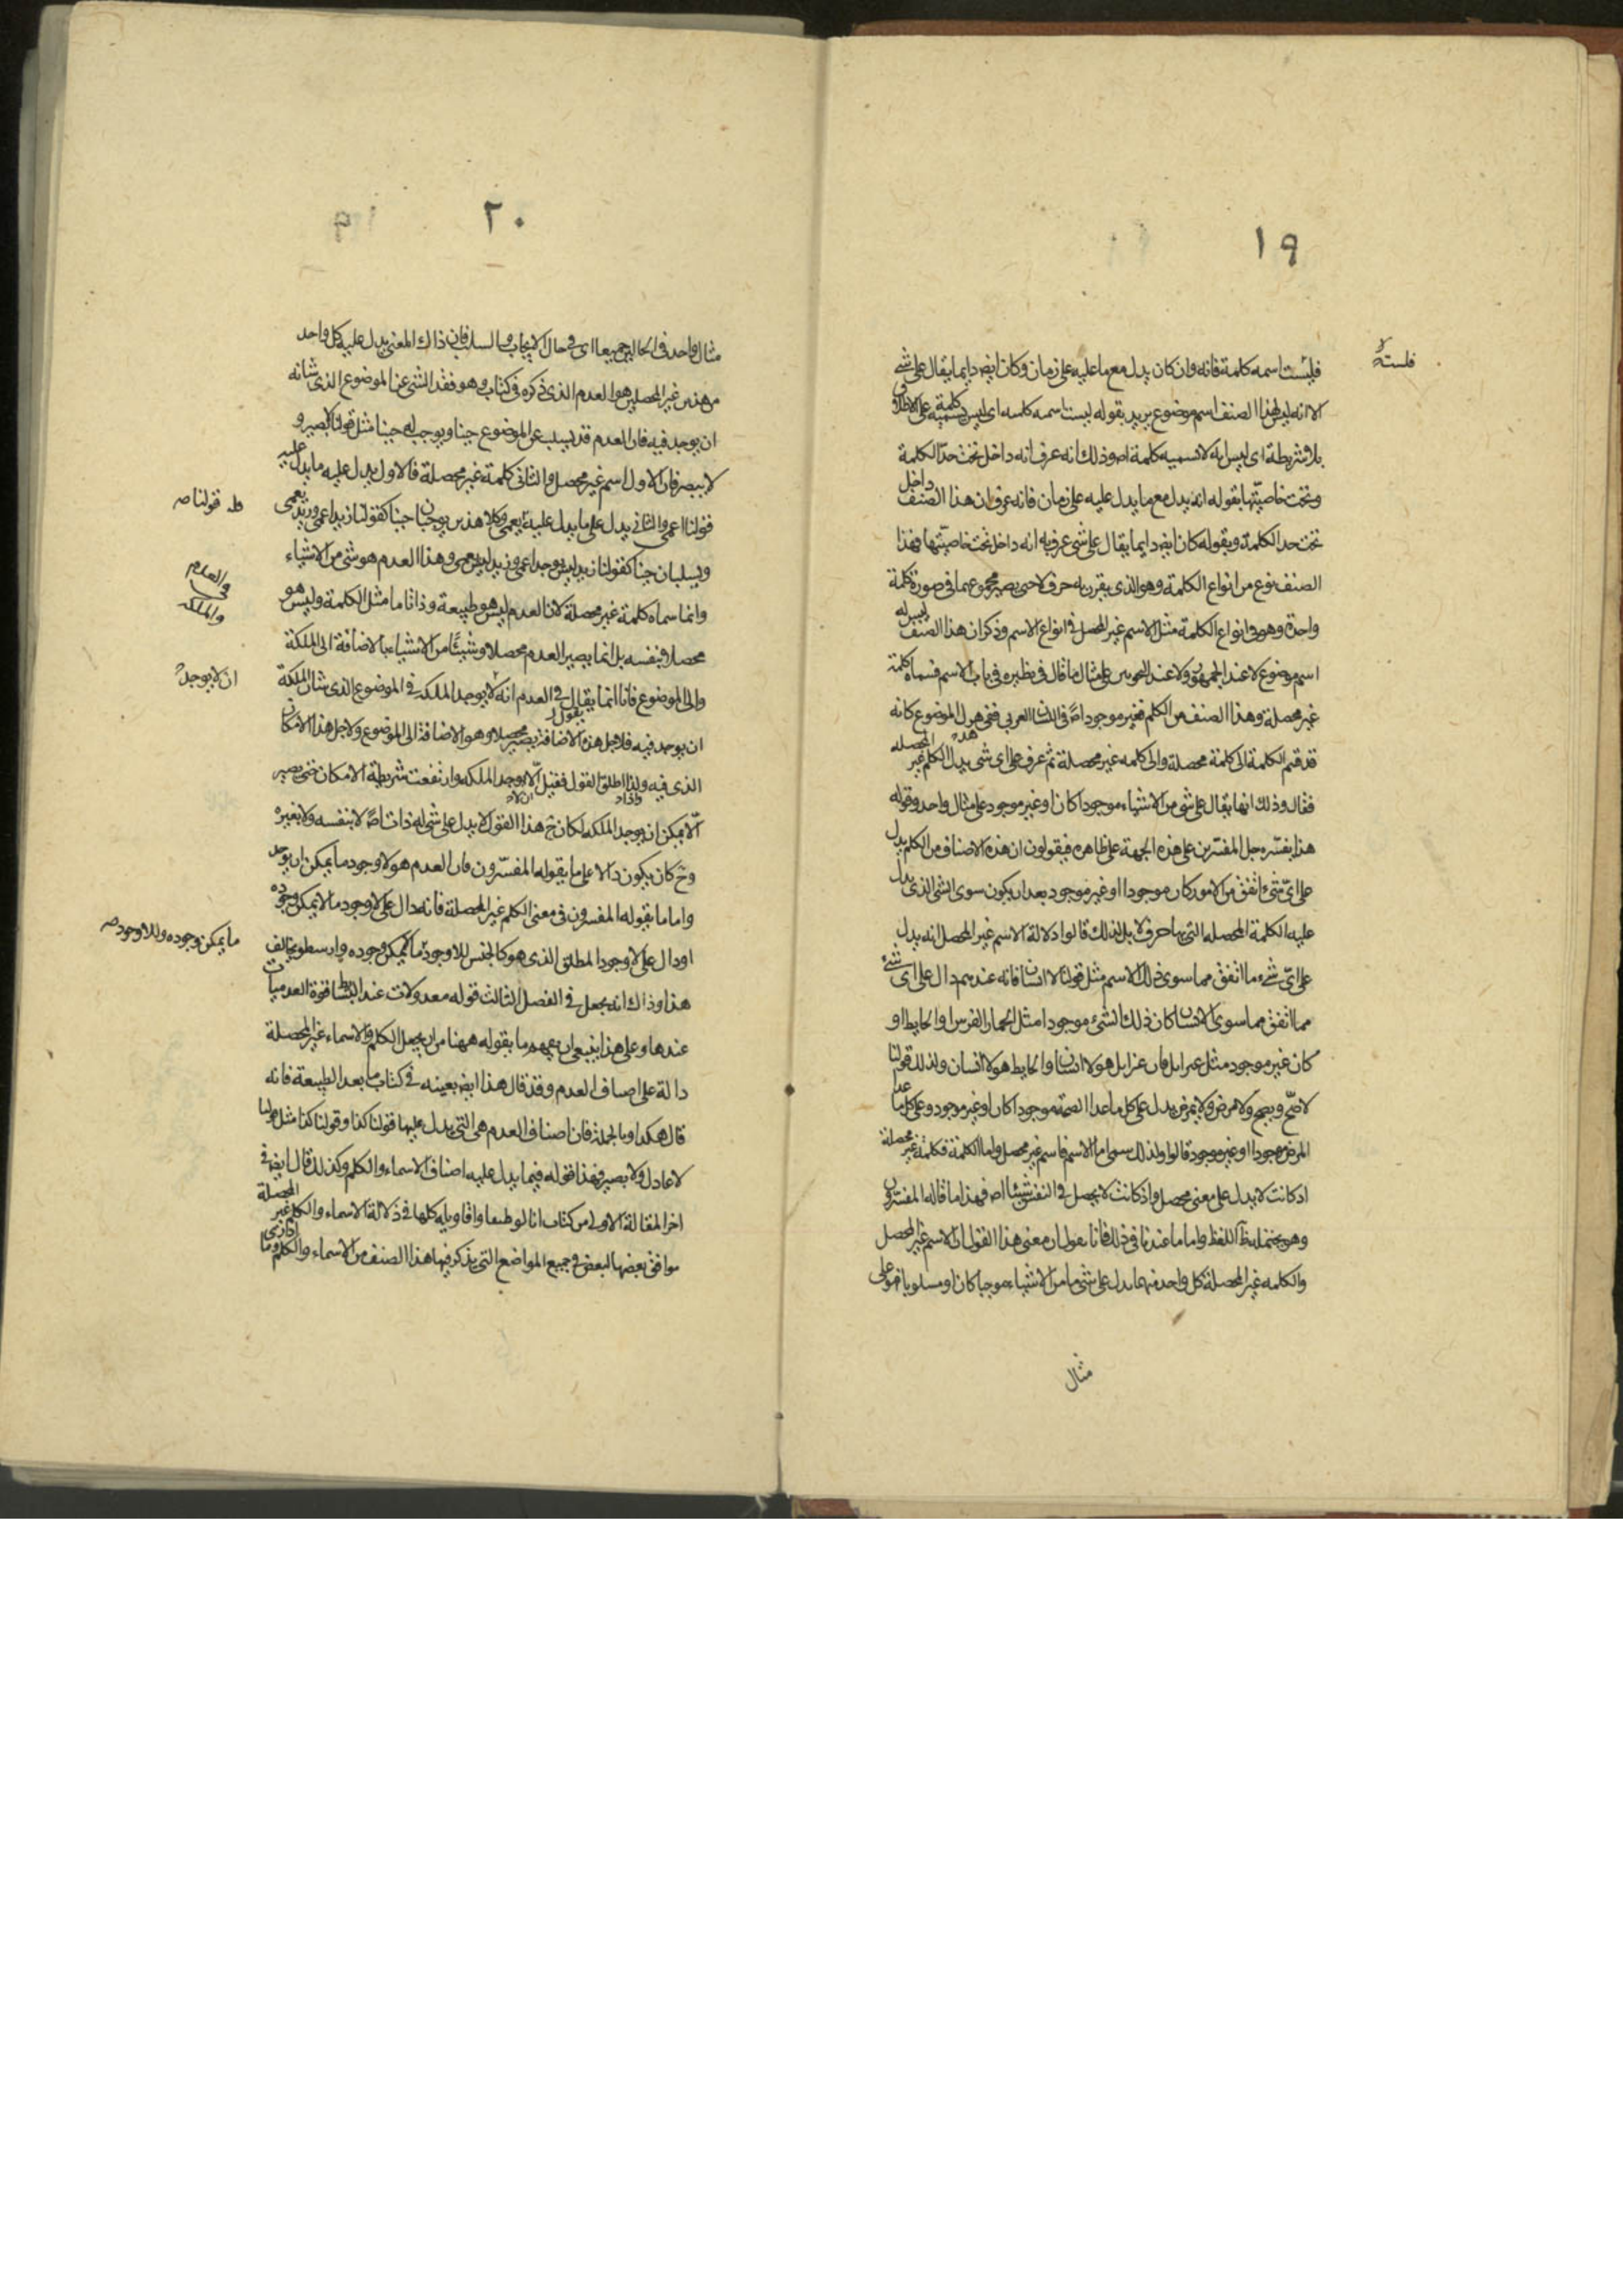 ١٩
فليست اسمه كلمة فانه وان كان يدل مع ما عليه على زمان وكان ايض دايما يقال على شئ
الا انه ليس لهذا الصنف اسم موضوع يريد بقوله ليست اسمه كلمه اى ليس تسميه كلمة على الاطلاق
بلا شريطة اى ليس له لا تسميه كلمة اص وذلك انه عرف انه داخل تحت حدّ الكلمة
وتحت خاصيّتها بقوله انه يدل مع ما يدل عليه على زمان فانه عرف ان هذا الصنف داخل
تحت حد الكلمة وبقوله كان ايض دايما يقال على شئ عرف به انه داخل تحت خاصيّتها فهذا
الصنف نوع من انواع الكلمة وهو الذى يقرن به حرف لا حتى يصير مجموعهما فى صورة كلمة
واحدة وهو فى انواع الكلمة مثل الاسم غير المحصل فى انواع الاسم وذكر ان هذا الصنف ليس له
اسم موضوع لا عند الجمهور ولا عند النحويين على مثال ما قال فى نظيره فى باب الاسم فسماه كلمة
غير محصلة وهذا الصنف من الكلم فغير موجود اص فى اللسان العربى فهو الموضوع كانه
قد قسم الكلمة الى كلمة محصلة والى كلمه غير محصلة ثم عرف على اى شئ يدل الكلم غير المحصله
فقال وذلك انها يقال على شئ من الاشياء موجودا كان او غير موجود على مثال واحد وقوله
هذا يفسّره جل المفسّرين على هذه الجهة على ظاهره فيقولون ان هذه الاصناف من الكلم يدل
على اىّ شئ اتفق من الامور كان موجودا او غير موجود بعد ان يكون سوى الشئ الذى يدل
عليه الكلمة المحصله التى بها حرف لا بل لذلك قالوا دلالة الاسم غير المحصل انه يدل
على اىّ شئ ما اتفق مما سوى ذلك الاسم مثل قولنا لا انسان فانه عندهم دال على اى شئ
مما اتفق مما سوى الانسان كان ذلك الشئ موجودا مثل الحمار الفرس او الحايط او
كان غير موجود مثل عنزايل فان عنزايل هو لا انسان والحايط هو لا انسان ولذلك قولنا
لا صحّ ويصح ولا مرض ولا يمرض يدل على كل ما عدا الصحة موجودا كان او غير موجود وعلى كل ما عدا
المرض موجودا او غير موجود قالوا ولذلك سمى اما الاسم فاسم غير محصل واما الكلمة فكلمة غير محصلة
اذ كانت لا يدل على معنى محصل واذ كانت لا يحصل فى النفس شيئا اص فهذا ما قاله المفسّرون
وهو يحتمله اللفظ واما ما عندنا فى ذلك فانا نقول ان معنى هذا القول ان الاسم غير المحصل
والكلمه غير المحصلة كل واحد منهما يدل على شئ ما من الاشياء موجبا كان او مسلوبا فهو على
مثال
٢٠
مثال واحد فى الحالين جميعا اى فى حال الايجاب والسلب فان ذلك المعنى يدل عليه كل واحد
من هذين غير المحصلين هو العدم الذى ذكره فى كتاب وهو فقد الشئ عن الموضوع الذى شانه
ان يوجد فيه فان العدم قد يسلب عن الموضوع حينا ويوجب له حينا مثل قولنا لا بصير و
لا يبصر فان الاول اسم غير محصل والثانى كلمة غير محصلة فالاول يدل عليه ما يدل عليه
قولنا اعمى والثانى يدل على ما يدل عليه يعمى وكلا هذين يوجبان حينا كقولنا زيد اعمى وزيد يعمى
ويسلبان حينا كقولنا زيد ليس يوجد اعمى وزيد ليس يعمى وهذا العدم هو شئ من الاشياء
وانما سماه كلمة غير محصلة لان العدم ليس هو طبيعة وذاتا ما مثل الكلمة وليس هو
محصلا بنفسه بل انما يصير العدم محصلا وشيئا من الاشياء بالاضافة الى الملكة
والى الموضوع فانا انما يقال فى العدم انه لا يوجد الملكه فى الموضوع الذى شان الملكة
ان يوجد فيه فلاجل هذه الاضافة يصير محصلا وهو الاضافة الى الموضوع ولاجل هذا الامكان
الذى فيه ولذا اطلق القول فقيل الّا يوجد الملكه وارتفعت شريطة الامكان حتى يصير
الّا يمكن ان يوجد الملكه لكان ح هذا القول لا يدل على شئ له ذات اص لا بنفسه ولا بغيره
وح كان يكون دالا على ما يقوله المفسّرون فان العدم هو لا وجود ما يمكن ان يوجد
واما ما يقوله المفسرون فى معنى الكلم غير المحصلة فانه دال على لا وجود ما لا يمكن وجوده
او دال على لا وجود المطلق الذى هو كالجنس للاوجود ما لا يمكن وجوده وارسطو يخالف
هذا وذاك انه يجعل فى الفصل الثالث قوله معدولات عند البسايط قوة العدميات
عندها وعلى هذا ينبغى ان يفهم ما يقوله ههنا من ان يجعل الكلم والاسماء غير المحصلة
دالة على اصناف العدم وقد قال هذا ايض بعينه فى كتاب ما بعد الطبيعة فانه
قال هكذا وبالجملة فان اصناف العدم هى التى يدل عليها قولنا كذا وقولنا كذا مثل قولنا
لا عادل ولا بصير فهذا قوله فيما يدل عليه اصناف الاسماء والكلم وكذلك قال ايض فى
اخر المقالة الاولى من كتاب انالوطيقا واقاويله كلها فى دلالة الاسماء والكلم غير المحصلة
موافق بعضها لبعض فى جميع المواضع التى يذكر فيها هذا الصنف من الاسماء والكلم
قولنا صه
والعدم
والملكه
ان لا يوجد
ما يمكن وجوده وللاوجود صه